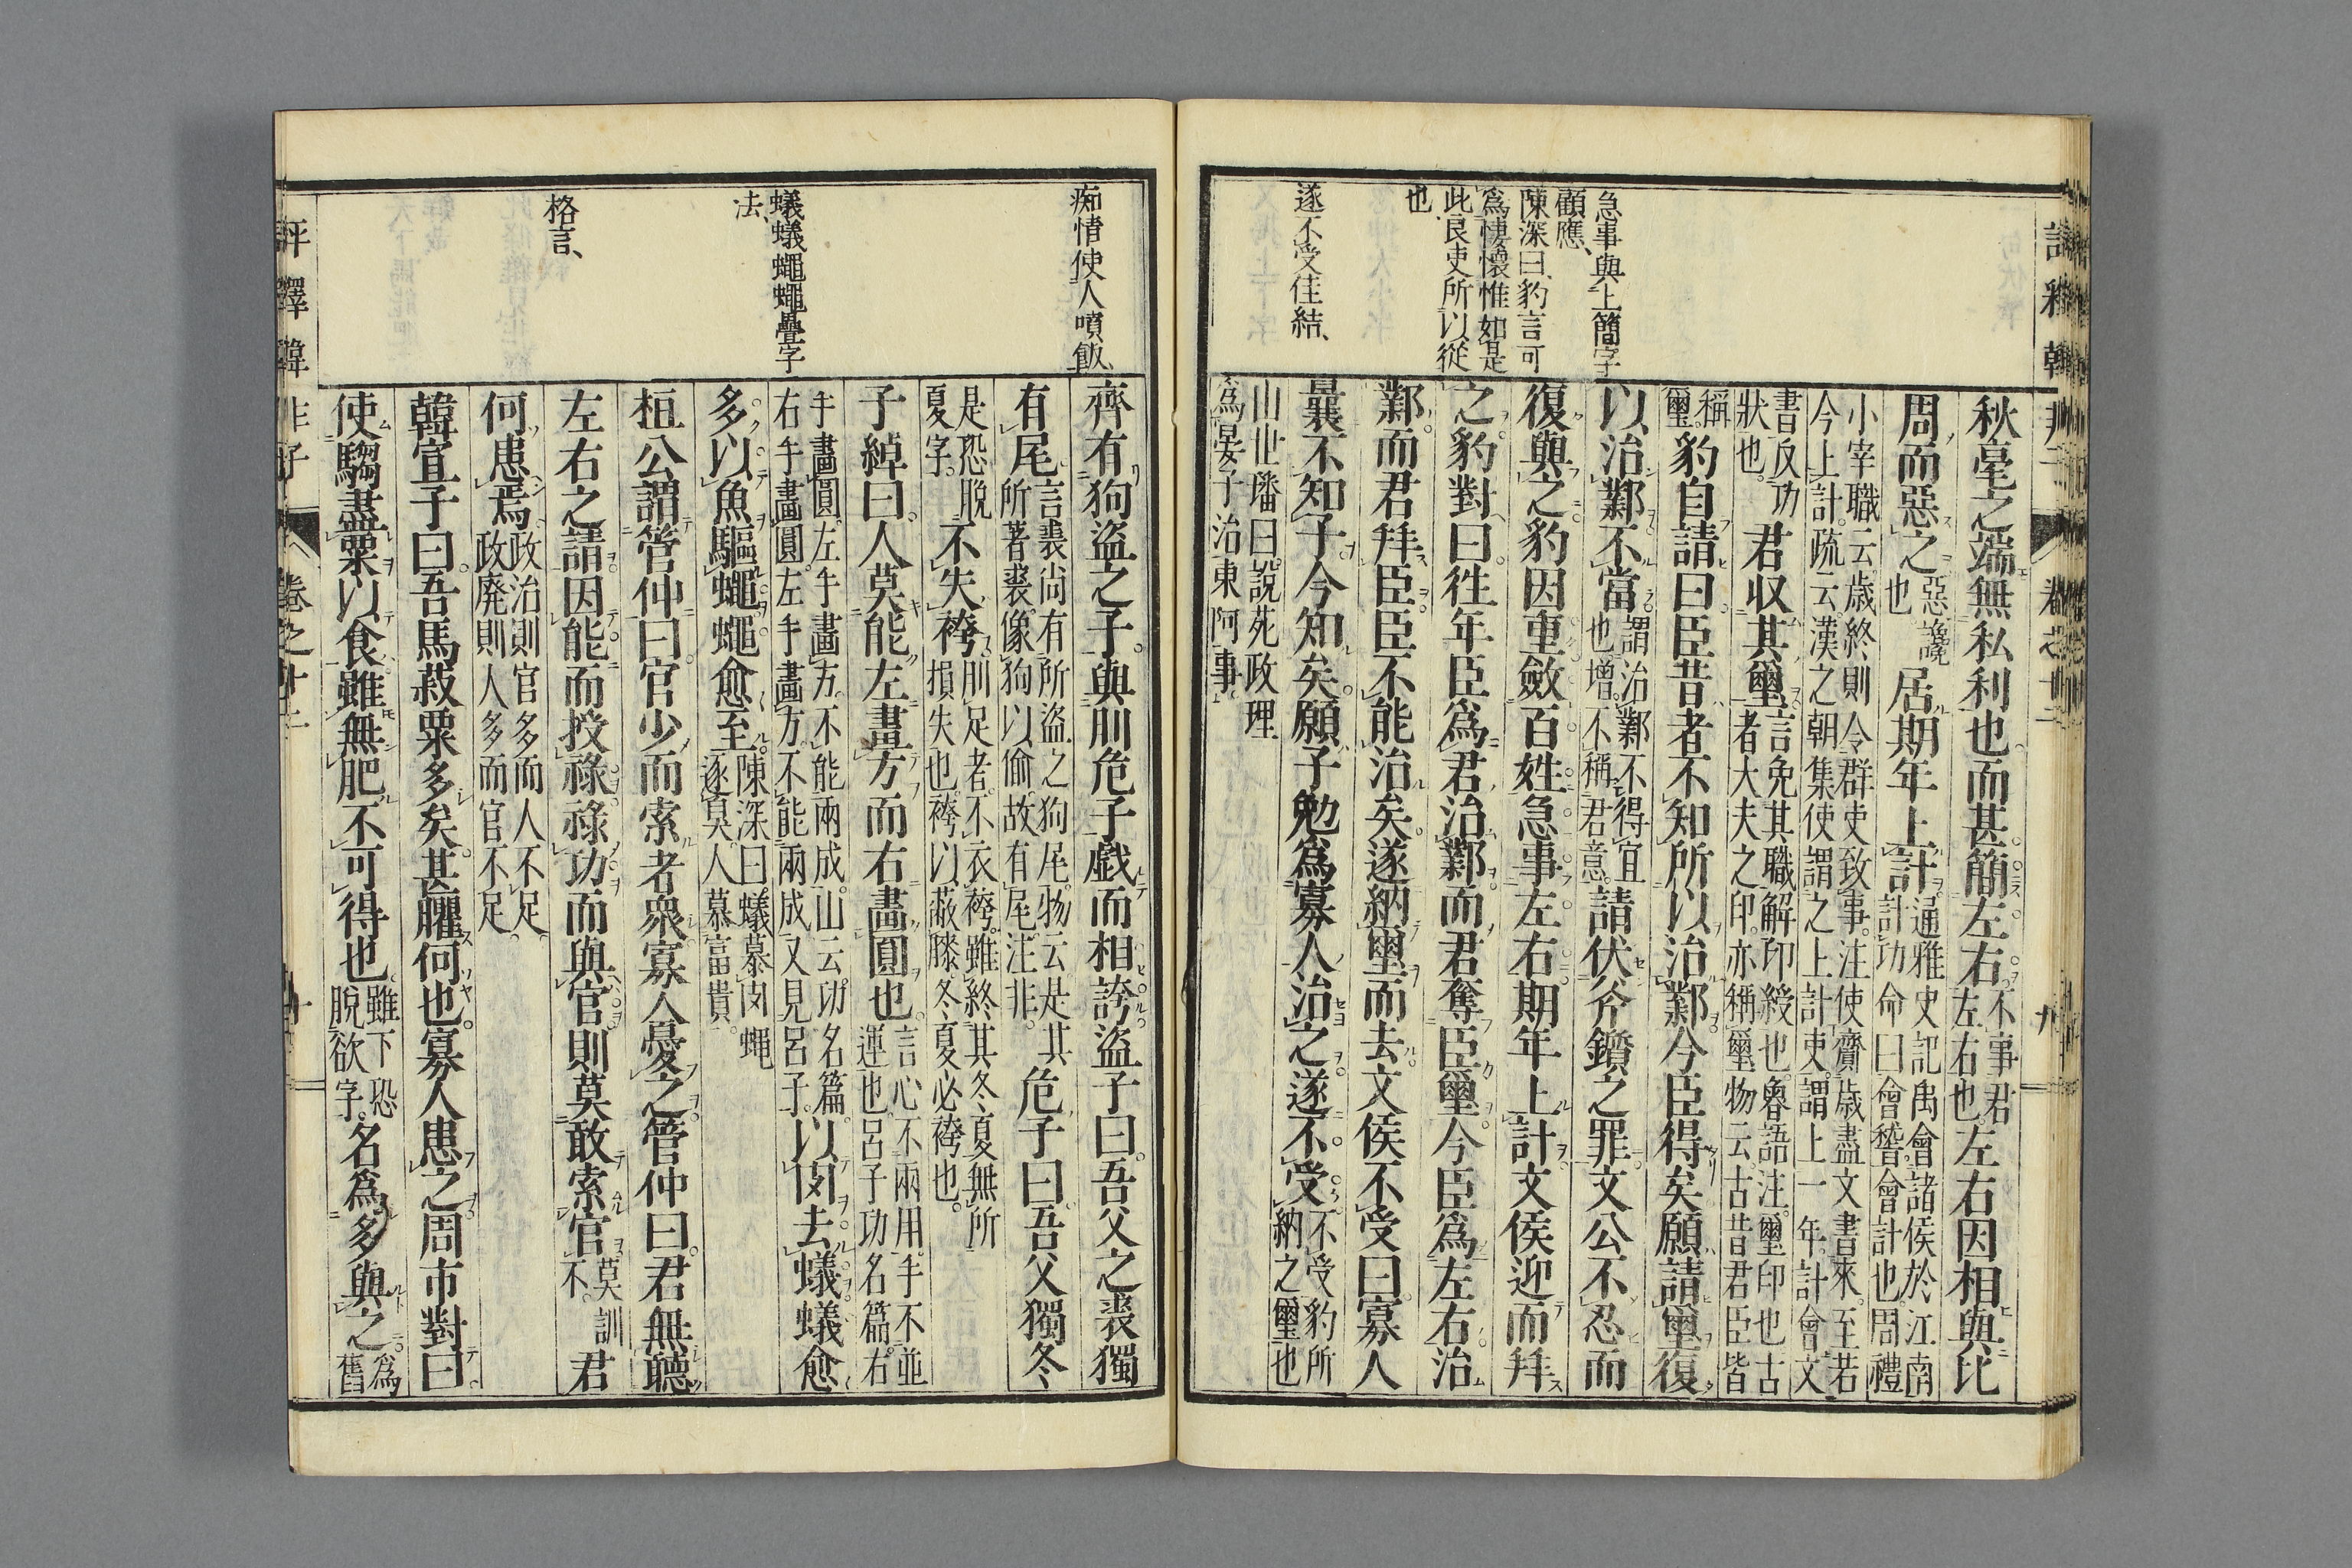 急事與上簡字
顧應、
陳深曰、豹言可
爲悽懷惟如是
此良吏所以從
也
遂不受佳結、
秋毫之端無私利也而甚簡左右不事君左右也左右因相與比
周而惡之惡讒也居期年上計通雅史記禹會諸侯於江南計功命曰會稽會計也周禮
小宰職云歲終則令群吏致事注使齎歲盡文書來至若今上計疏云漢之朝集使謂之上計吏謂上一年計會文
書反功狀也君収其璽言免其職解印綬也魯語注璽印也古者大夫之印亦稱璽物云古昔君臣皆
稱璽豹自請曰臣昔者不知所以治鄴今臣得矣願請璽復
以治鄴不當謂治鄴不得宜也増不稱君意請伏斧鑕之罪文公不忍而
復與之豹因重斂百姓急事左右期年上計文侯迎而拜
之豹對曰徃年臣爲君治鄴而君奪臣璽今臣爲左右治
鄴而君拜臣臣不能治矣遂納璽而去文侯不受曰寡人
曩不知子今知矣願子勉爲寡人治之遂不受不受豹所納之璽也
山世璠曰說苑政理
爲晏子治東阿事
痴情使人噴飯、
蟻蟻蠅蠅疊字
法、
格言、
齊有狗盜之子與刖危子戲而相誇盜子曰吾父之裘獨
有尾言裘尚有所盜之狗尾物云是其所著裘像狗以偷故有尾注非危子曰吾父獨冬
是恐脫夏字不失袴刖足者不衣袴雖終其冬夏無所損失也袴以蔽膝冬夏必袴也
子綽曰人莫能左畫方而右畫圓也言心不兩用手不並運也呂子功名篇右
手畫圓左手畫方不能兩成山云功名篇右手畫圓左手畫方不能兩成又見呂子以肉去蟻蟻愈
多以魚驅蠅蠅愈至陳深曰蟻慕肉蠅逐臭人慕富貴
桓公謂管仲曰官少而索者衆寡人憂之管仲曰君無聽
左右之請因能而授祿祿功而與官則莫敢索官莫訓不君
何患焉政治則官多而人不足政廃則人多而官不足
韓宣子曰吾馬菽粟多矣甚臞何也寡人患之周市對曰
使騶盡粟以食雖無肥不可得也雖下恐脫欲字名爲多與之爲舊
評釋韓非子 卷之十二